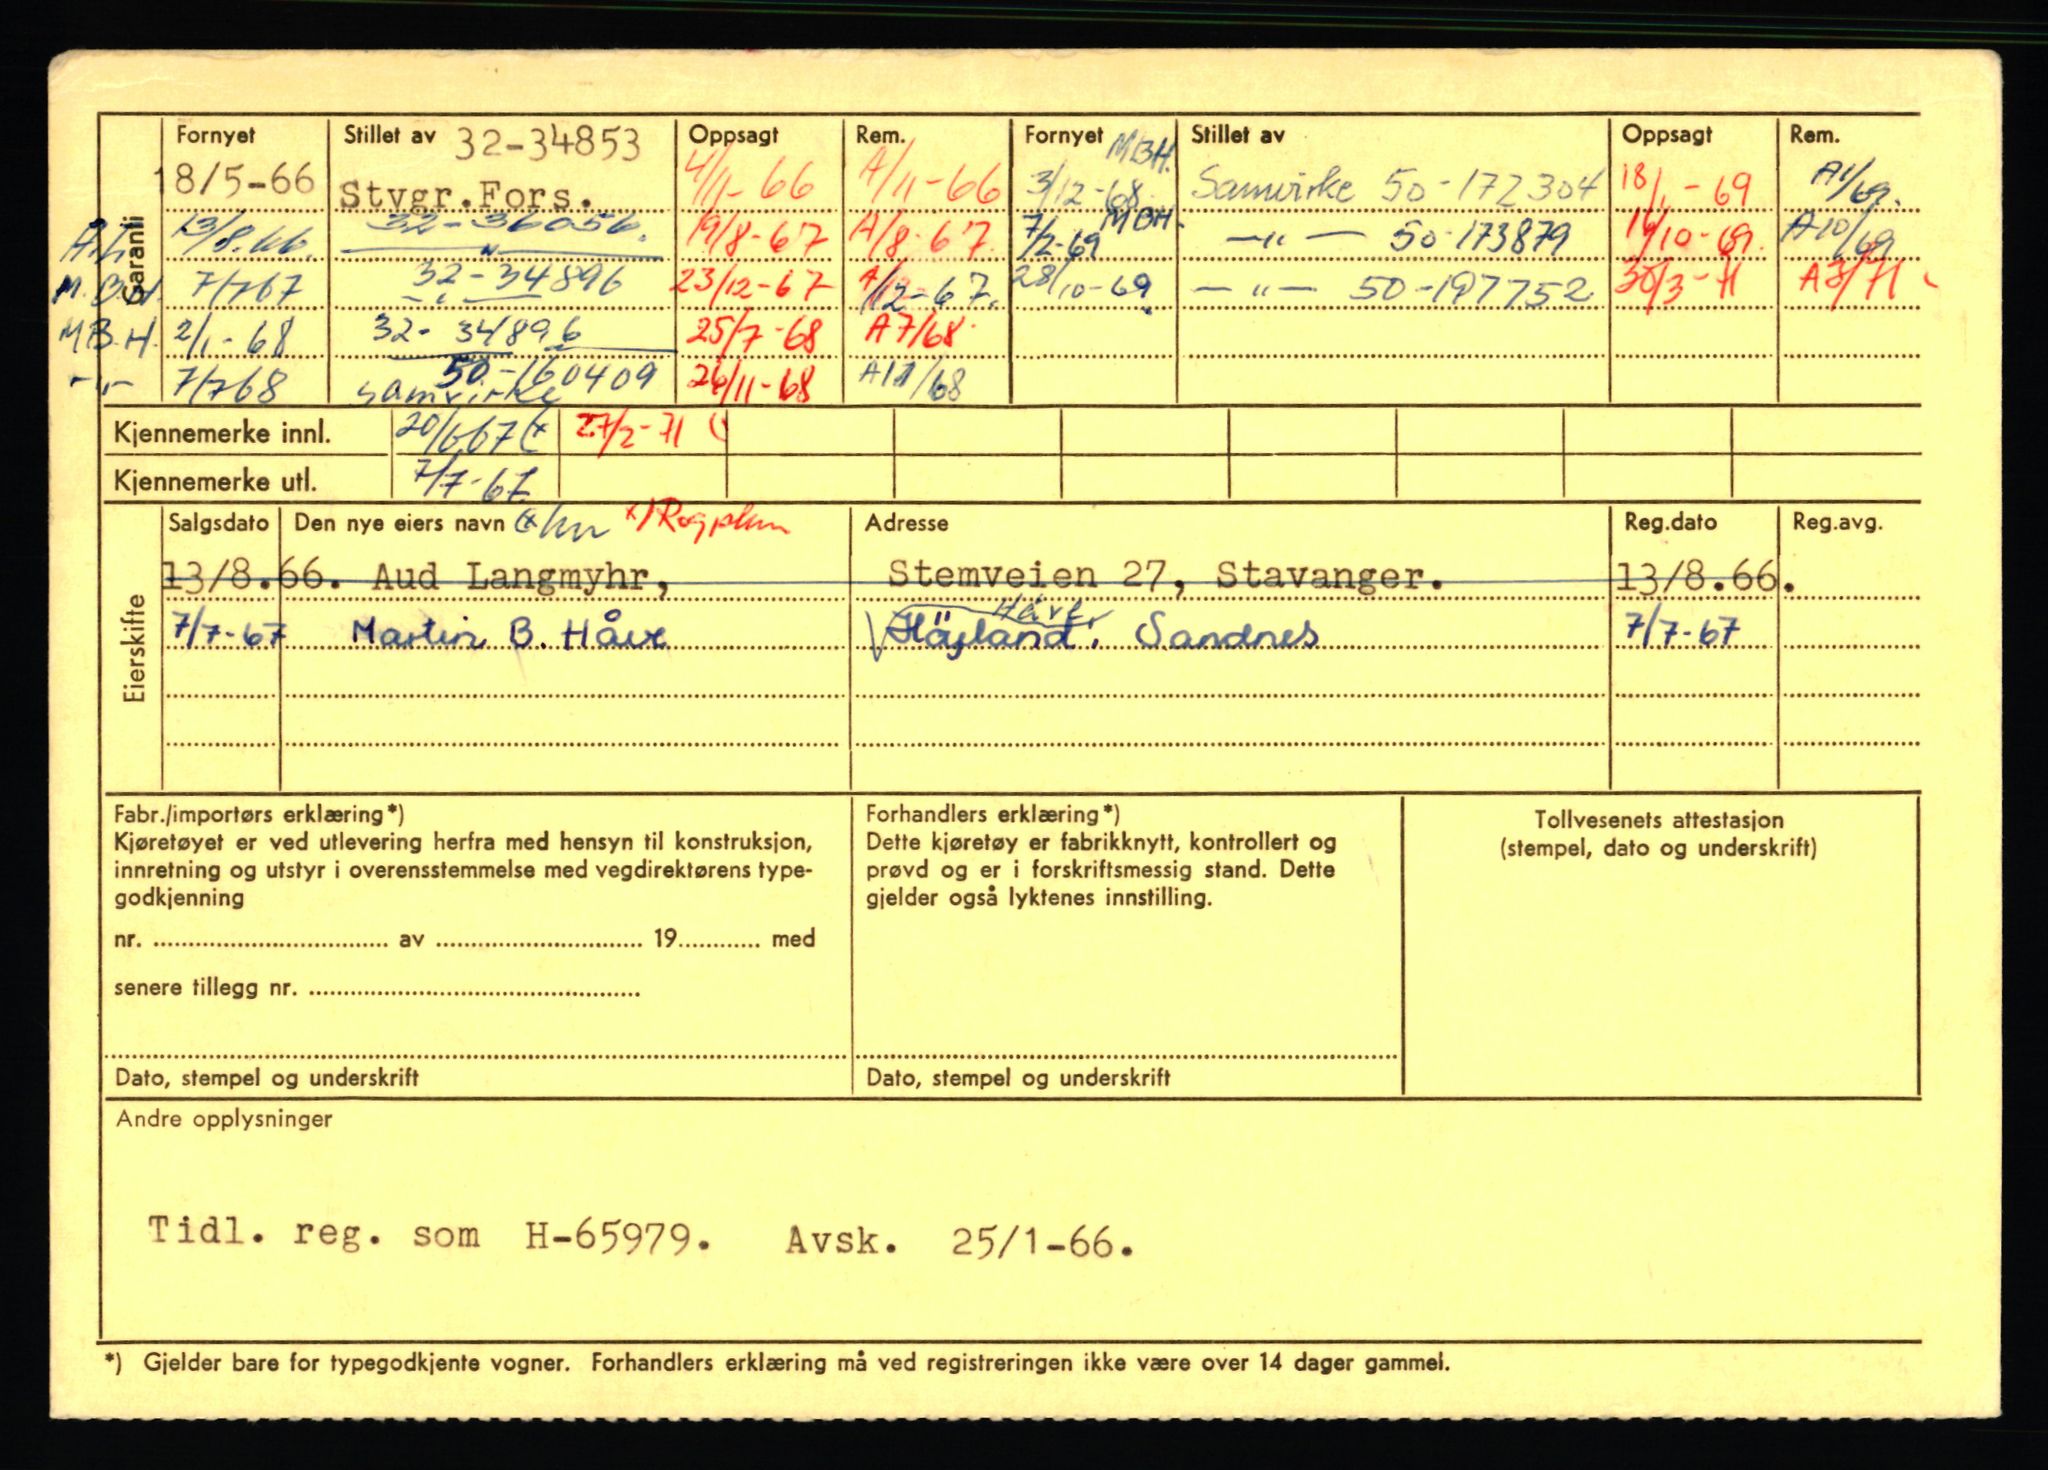 Garanti
Fornyet Stillet av 32-34853 Oppsagt Rem. Fornyet M.B.H. Stillet av Oppsagt Rem.
18/5-66 Stvgr.Fors. 4/11-66 A/11-66 3/12-68 Samvirke 50-172304 18/1-69 A1/69.
A.L. 13/8.66. 32-36056. 19/8-67 A/8-67 7/2-69 MBH. -"- 50-173879 16/10-69. A10/69
M.B.H. 7/767 32-34896 23/12-67 A/12-67. 28/10-69 -"- 50-197752 30/3-71 A3/71
M.B.H. 2/1-68 32-34896 25/7-68 A7/68
-"- 7/768 50-160409 Samvirke 26/11-68 A11/68
Kjennemerke innl. 20/6.67 (x 27/2-71
Kjennemerke utl. 7/7-67
Eierskifte
Salgsdato Den nye eiers navn Adresse Reg.dato Reg.avg.
13/8.66. Aud Langmyhr, Stemveien 27, Stavanger. 13/8.66.
Håve
7/7-67 Martin B. Håve Höyland, Sandnes 7/7-67
Fabr./importørs erklæring*)
Kjøretøyet er ved utlevering herfra med hensyn til konstruksjon,
innretning og utstyr i overensstemmelse med vegdirektørens type-
godkjenning
nr. .................. av .................. 19............ med
senere tillegg nr. ..................
Dato, stempel og underskrift
Forhandlers erklæring*)
Dette kjøretøy er fabrikknytt, kontrollert og
prøvd og er i forskriftsmessig stand. Dette
gjelder også lyktenes innstilling.
Dato, stempel og underskrift
Tollvesenets attestasjon
(stempel, dato og underskrift)
Andre opplysninger
Tidl. reg. som H-65979. Avsk. 25/1-66.
*) Gjelder bare for typegodkjente vogner. Forhandlers erklæring må ved registreringen ikke være over 14 dager gammel.